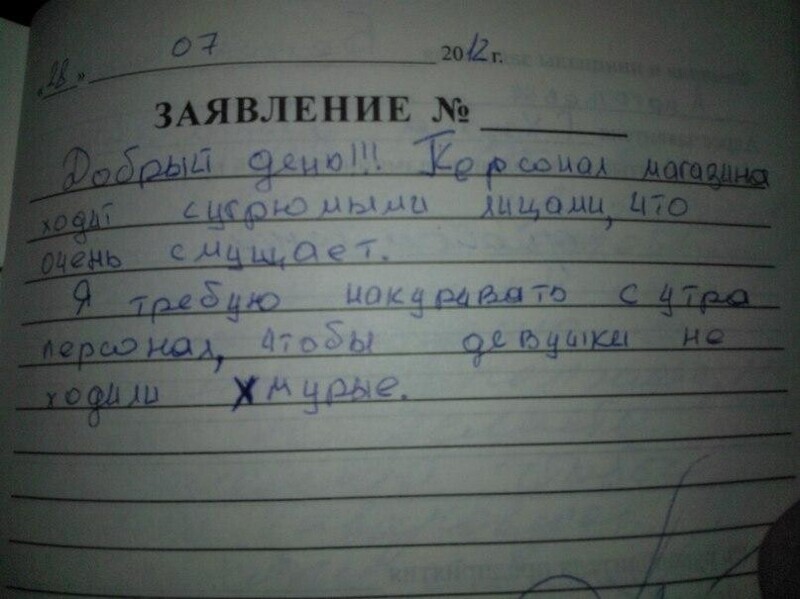 «28» 07 2012 г.
ЗАЯВЛЕНИЕ №
Добрый день!!! Персонал магазина
ходит с угрюмыми лицами, что
очень смущает.
Я требую накуривать с утра
персонал, чтобы девушки не
ходили хмурые.